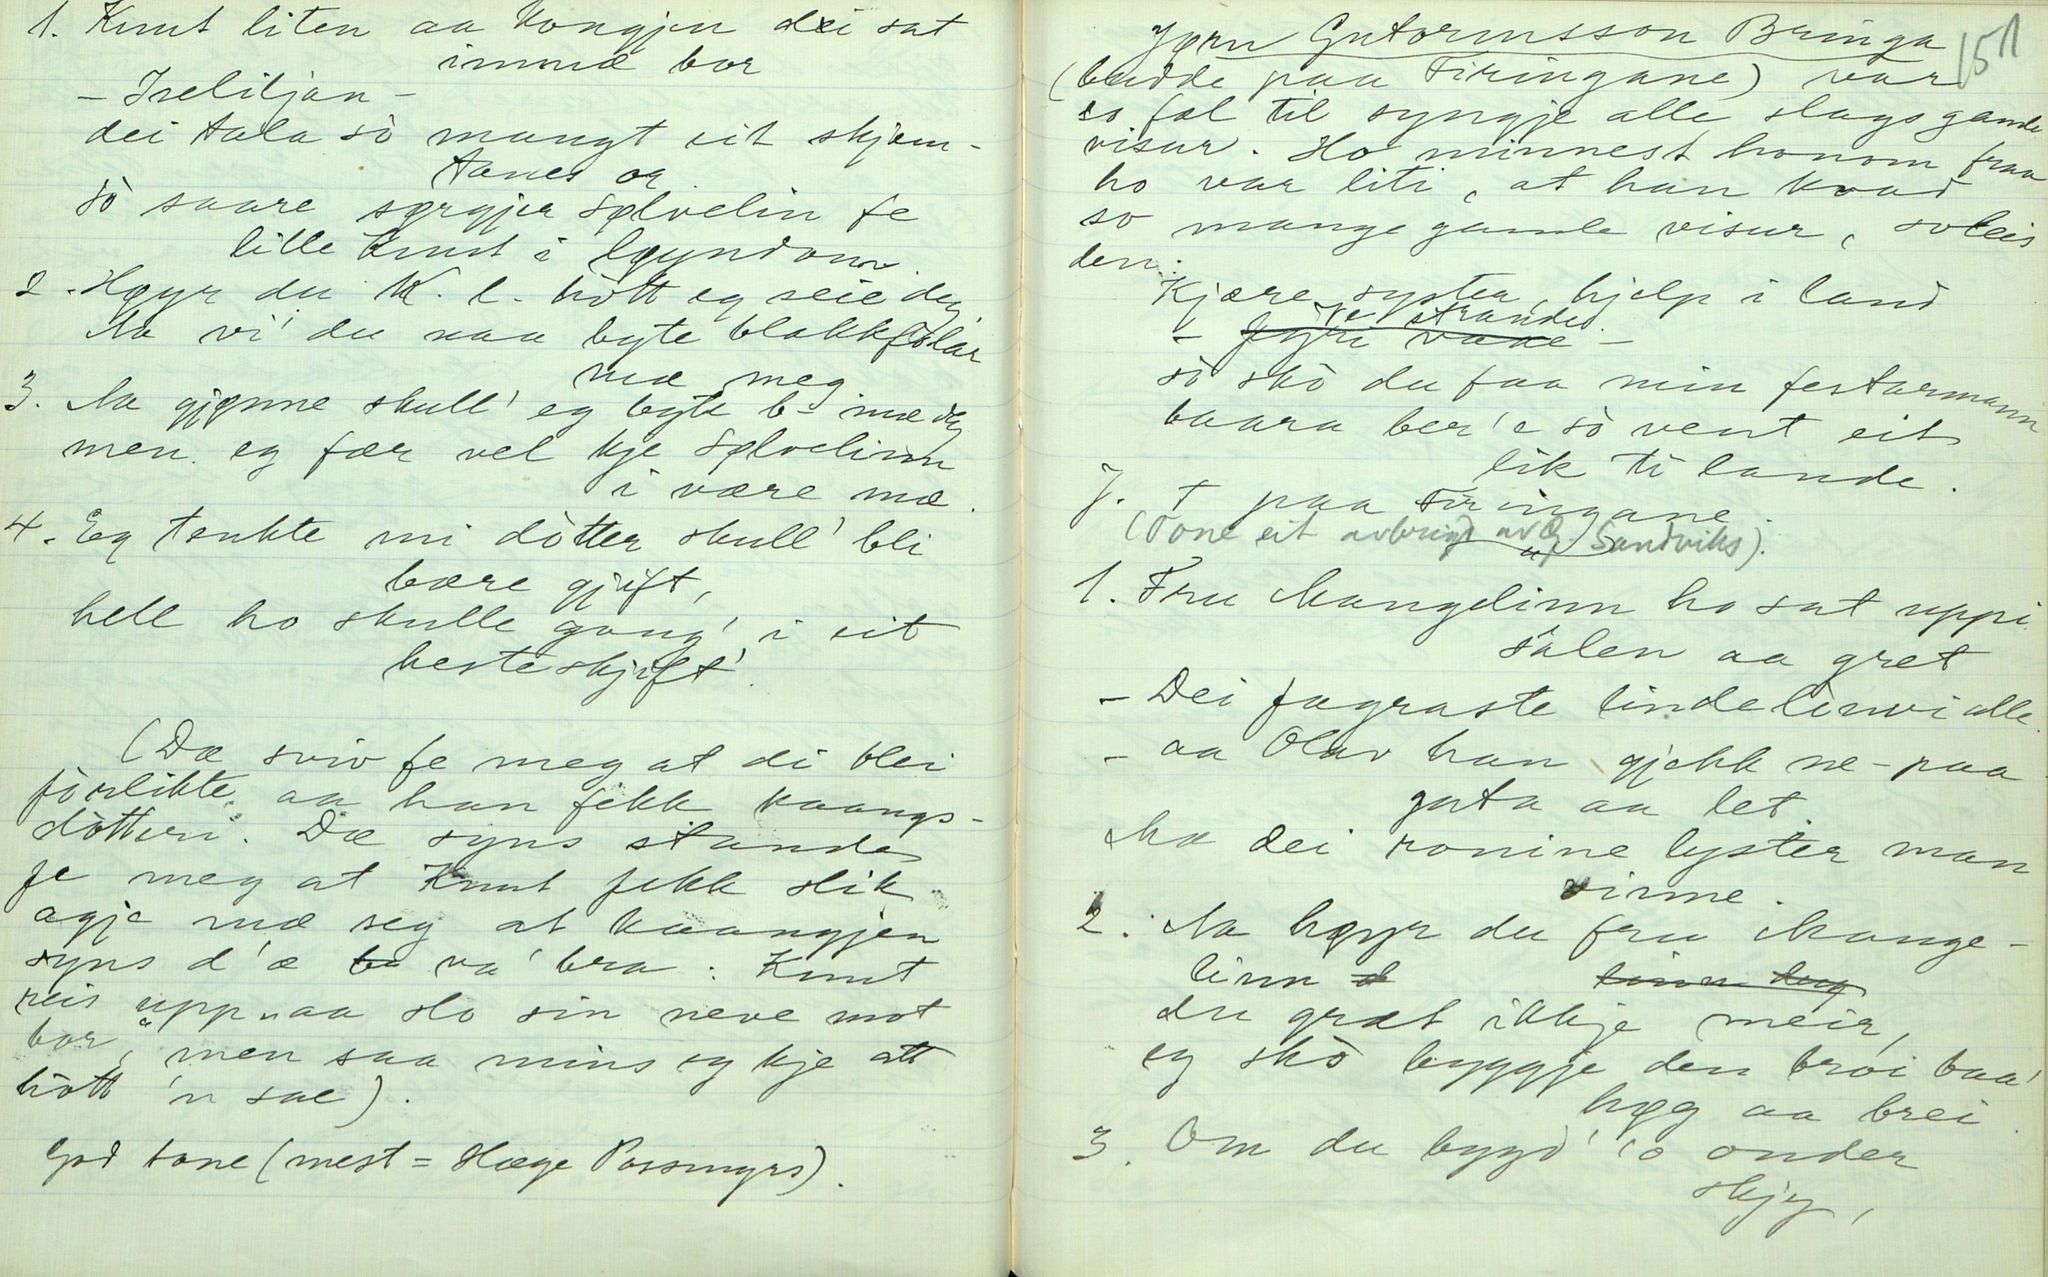 1. Knut liten aa Kongjen dei sat
innmæ bor
- Iseliljan -
dei tala sò mangt eit skjem-
tanes or
sò saare syrgjer Sølvelin fe
lille Knut i løyndom.
2. Høyr du K. l. hòtt eg seie deg
Aa vi' du naa byte blakkfolar
mæ meg
3. Aa gjønne skull' eg byte b- mæ deg
men eg fær vel kje Sølvelinn
i være mæ.
4. Eg tenkte mi dòtter skull' bli
bære gjift,
hell ho skulle gang' i eit
hesteskjift'.
(Dæ sviv fe meg at di blei
fòrlikte, aa han fekk kaangs-
dòtteri. Dæ syns standa
fe meg at Knut fekk slik
agje mæ seg at kaangjen
syns d'æ va' bra: Knut
reis upp "aa slo sin neve mot
bor", men saa mins eg kje att
hòtt 'n sae).
God tone (mest = Hæge Possmyrs).
151
Jørn Gutormsson Bringa
(budde paa Tiringane) var
so fæl til syngje alle slags gamle
visur. Ho minnest honom fraa
ho var liti, at han kvad
so mange gamle visur, soleis
den:
Kjære syster, hjelp i land
ve strande.
- Jøyri vane -
sò skò du faa min festarmann
baara ber'e sò vent eit
lik ti lande.
J. T paa Tiringane.
(Tone eit avbrigd av Sandviks).
1. Fru Mangelinn ho sat uppi
salen aa gret
- Dei fagraste lindelinvi alle.
- aa Olav han gjekk ne-paa
guta aa let.
Aa dei ronine lyster man
vinne.
2. Aa høyr du fru Mange-
linn
du græt ikkje meir,
eg skò byggje den broi baa'
høg aa brei.
3. Om du bygd' 'o onder
skjy,